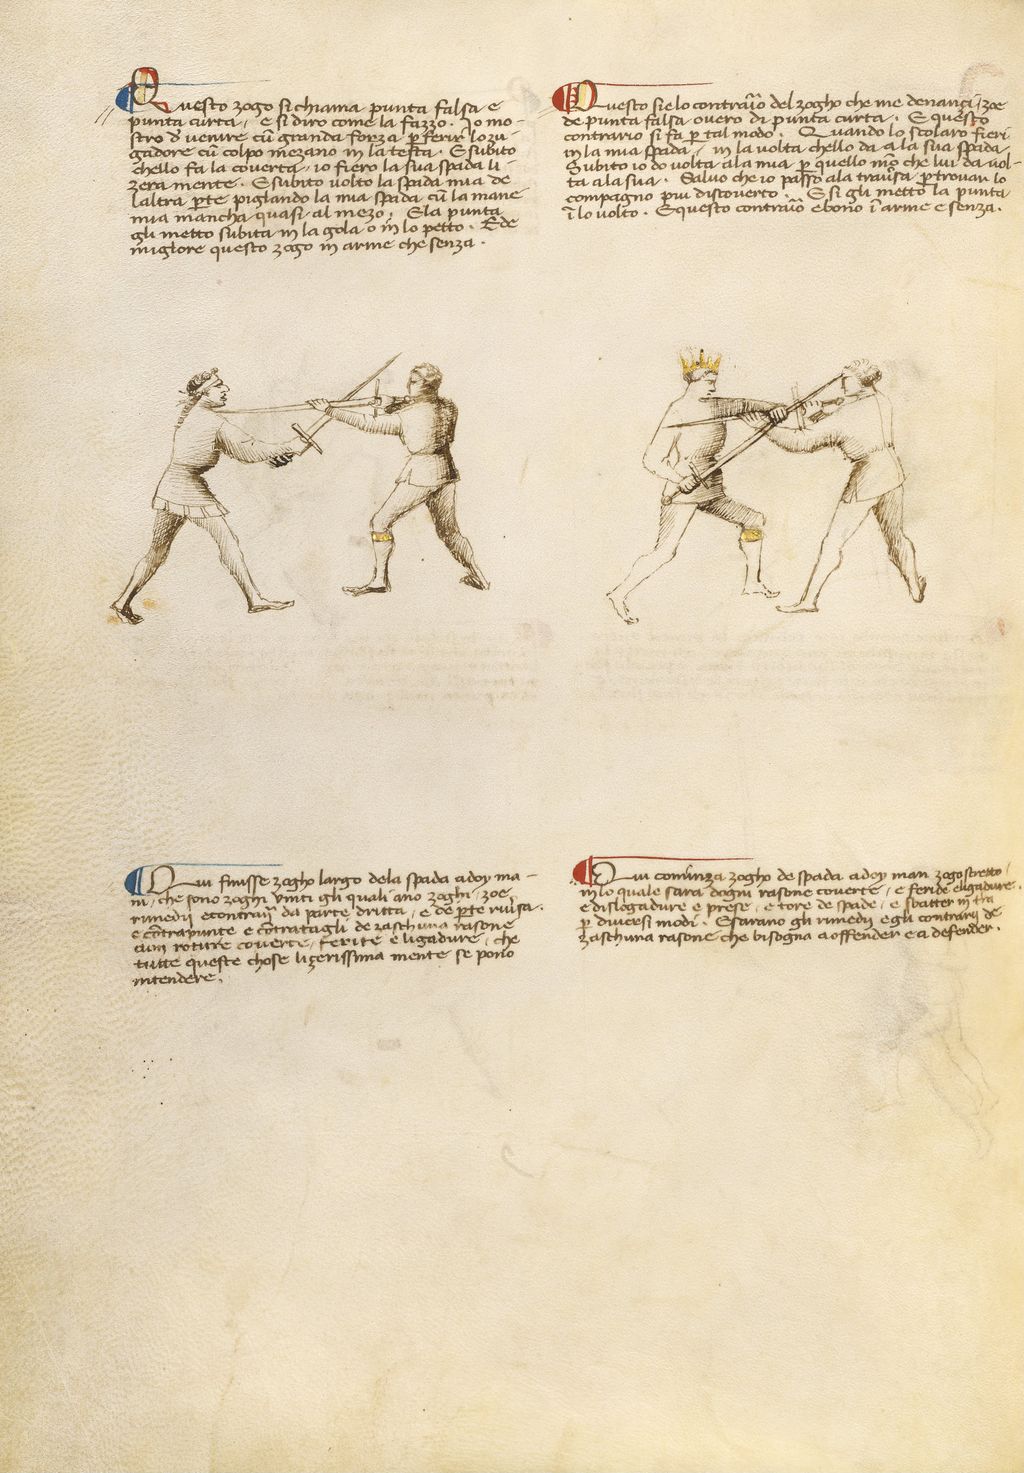 Questo zogo si chiama punta falsa e
punta curta, e si diro come la fazzo. Io mo-
stro d' venire cū granda forza p ferir lo zu-
gadore cū colpo mezano in la testa. E subito
chello fa la coverta, io fiero la sua spada li-
zera mente. E subito volto la spada mia de
laltra pte piglando la mia spada cū la mane
mia mancha quasi al mezo. E la punta
gli metto subita in la gola o in lo petto. E de
miglore questo zogo in arme che senza.
Questo sie lo contrario del zogho che me denançi, zoe
de punta falsa overo di punta curta. E questo
contrario si fa p tal modo. Quando lo scolaro fieri
in la mia spada, in la volta chello da a la sua spada
Subito io do volta ala mia p quello mō che lui da vol-
ta ala sua. Salvo che io passo ala trav'sa p trovar lo
compagno piu discoverto. E si gli metto la punta
ī lo volto. E questo contrario e bono ī arme e senza.
Qui finisse zogho largo dela spada a doy ma-
ni, che sono zoghi uniti gli quali āno zoghi, zoe,
rimedii e contrarii da parte dritta, e de pte riv'sa.
e cōtrapunte e cōtratagli de zaschuna rasone
cum roture coverte, ferite e ligadure, che
tutte queste chose lizerissima mente se pono
intendere.
Qui cominza zogho de spada a doy man zogo stretto,
in lo quale sara dogni rasone coverte, e feride e ligadure,
e dislogadure e prese, e tore de spade, e sbatter in tra
p diversi modi. E sarano gli rimedii e gli contrarii de
zaschuna rasone che bisogna a offender e a defender.